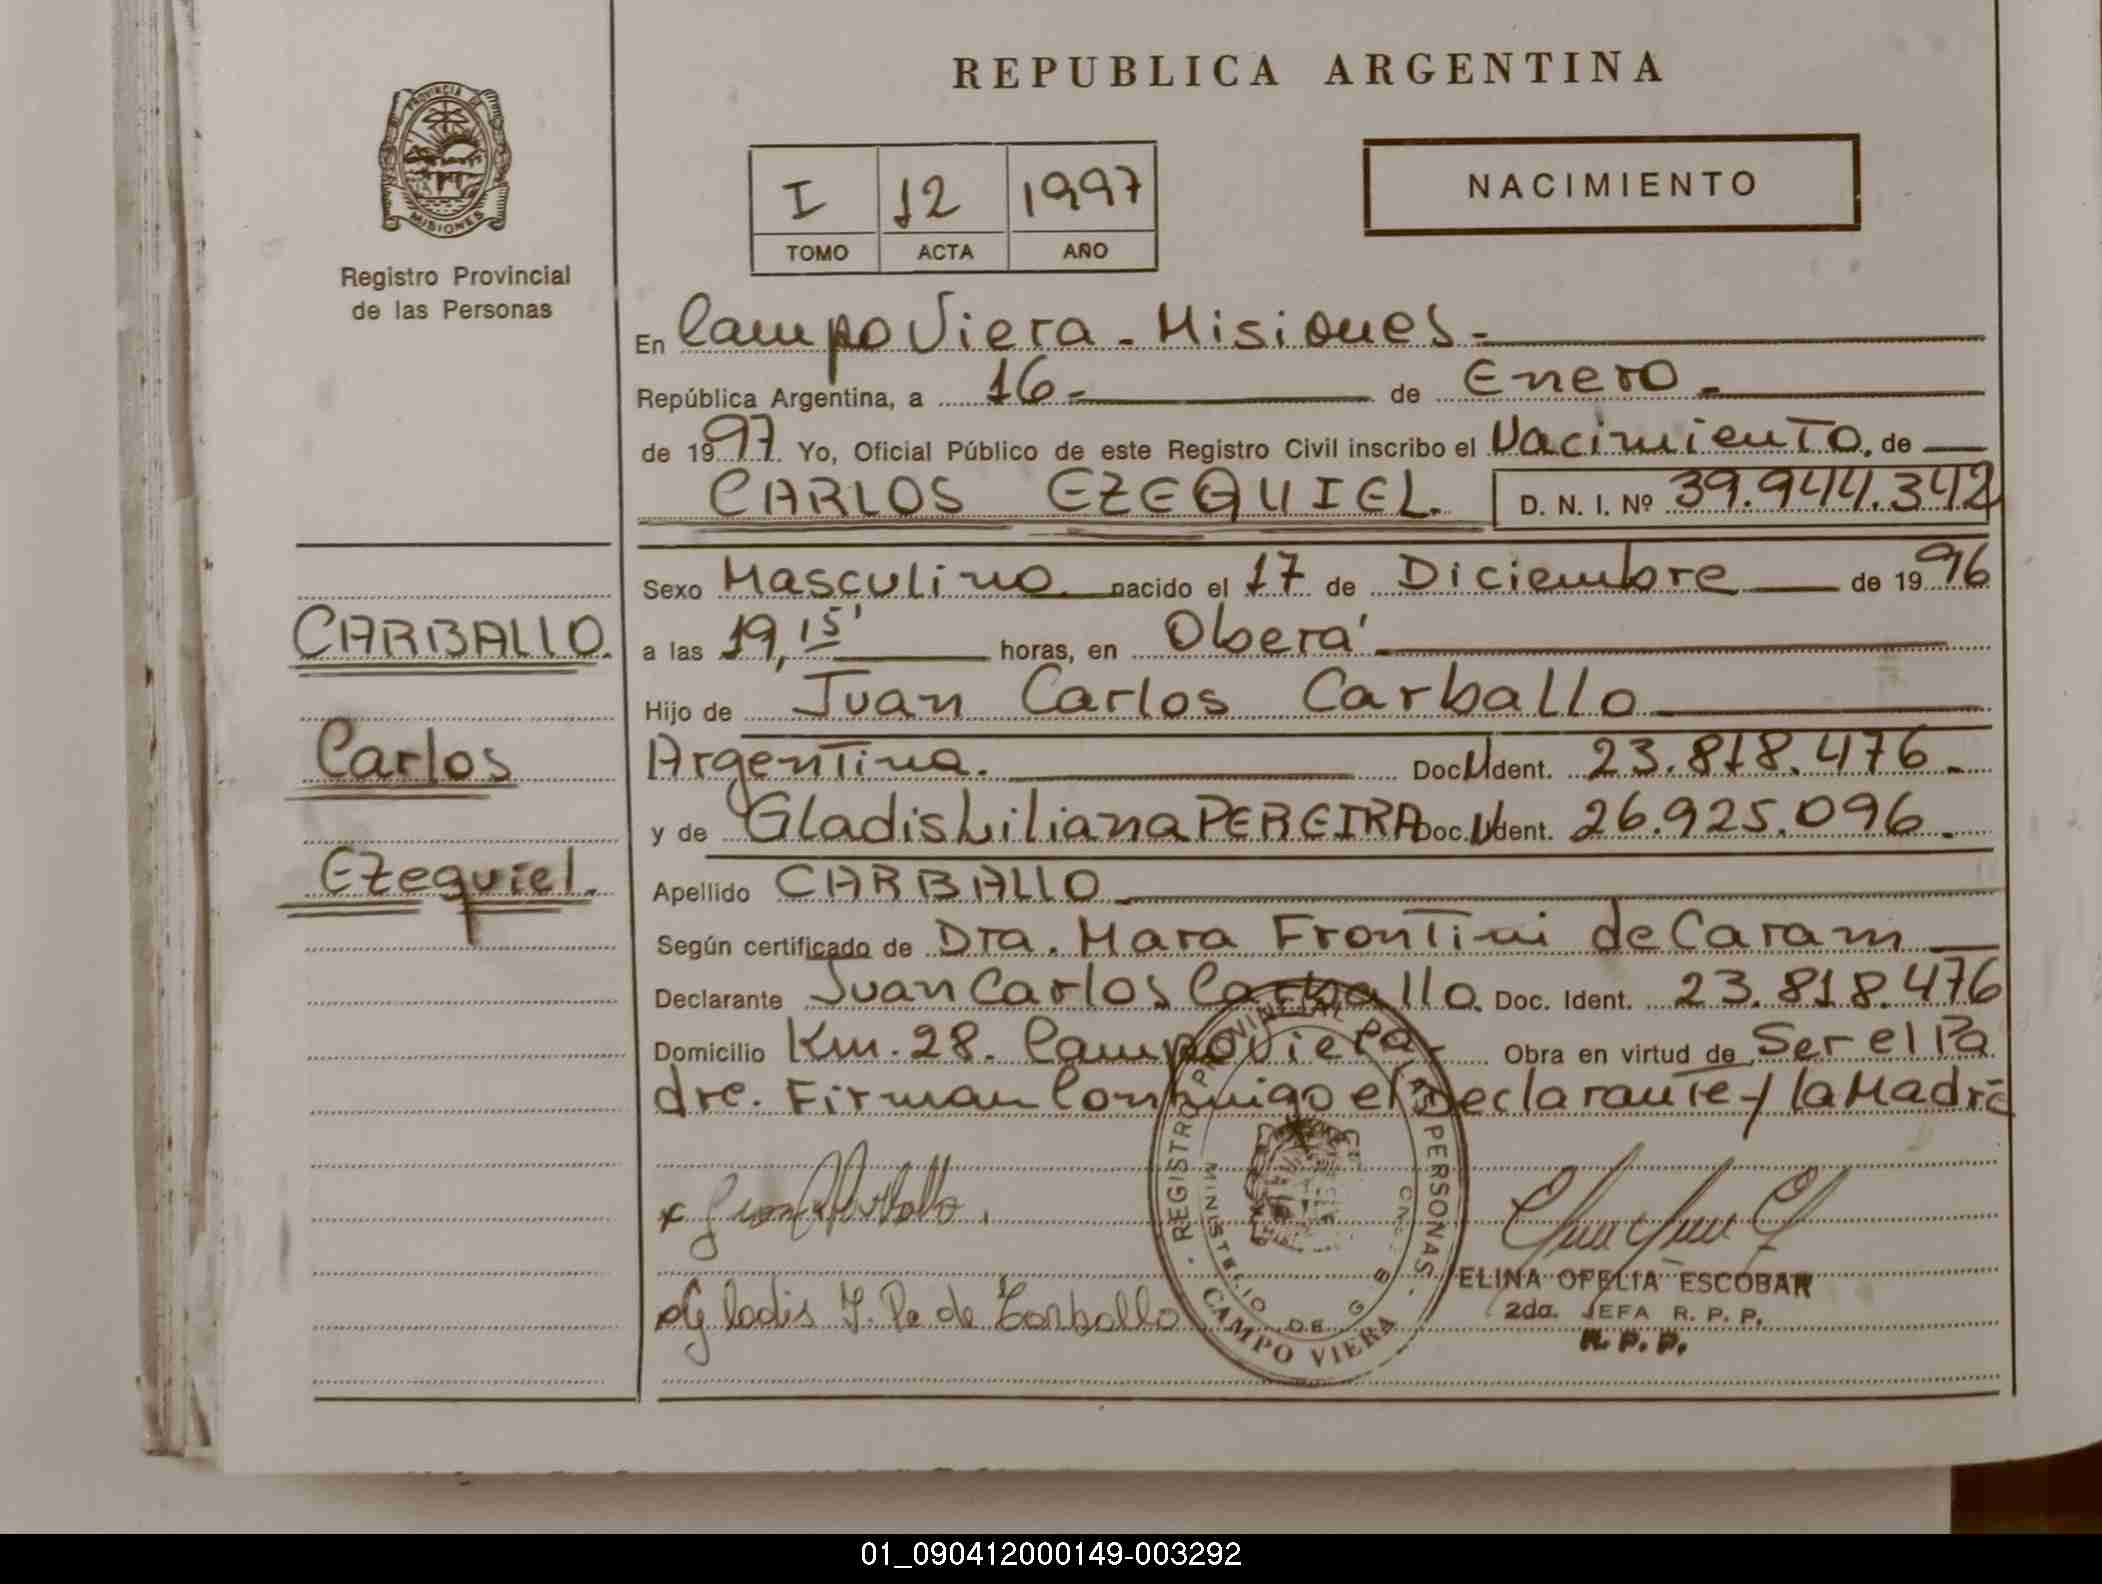 REPUBLICA ARGENTINA
PROVINCIA DE
MISIONES
Registro Provincial
de las Personas
I 12 1997
TOMO ACTA AÑO
NACIMIENTO
En Campo Viera - Misiones -
República Argentina, a 16 - de Enero -
de 1997 Yo, Oficial Público de este Registro Civil inscribo el Nacimiento, de
CARLOS EZEQUIEL. D. N. I. Nº 39.944.342
Sexo Masculino nacido el 17 de Diciembre de 1996
CARBALLO.
a las 19,15' horas, en Oberá
Hijo de Juan Carlos Carballo
Carlos
Argentina. Doc. Ident. 23.818.476.-
y de Gladis Liliana PEREIRA Doc. Ident. 26.925.096.
Ezequiel.
Apellido CARBALLO
Según certificado de Dra. Mara Frontini de Caram
Declarante Juan Carlos Carballo. Doc. Ident. 23.818.476
Domicilio Km. 28. Campo Viera - Obra en virtud de Ser el Pa
dre. Firman Conmigo el Declarante y la Madre
REGISTRO PROVINCIAL DE LAS PERSONAS
MINISTERIO DE G.
CAMPO VIERA
Gladis L. Pe de Carballo
ELINA OFELIA ESCOBAR
2da. JEFA R. P. P.
R. P. P.
01_090412000149-003292